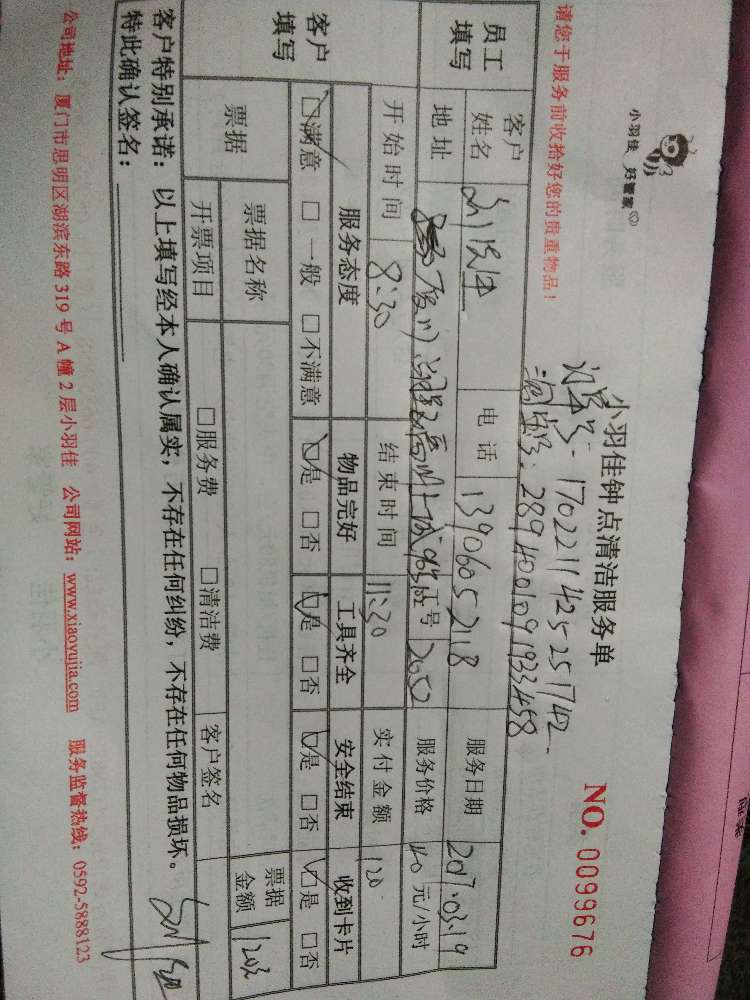 小羽佳 好管家
小羽佳钟点清洁服务单
NO. 0099676
请您于服务前收拾好您的贵重物品！
员工填写
客户姓名
电话 13906052118
服务日期 2017.03.19
地址
工号 2652
服务价格 40元/小时
开始时间 8:30
结束时间 11:30
实付金额 120
客户填写
服务态度 物品完好 工具齐全 安全结束 收到卡片
☑满意 □一般 □不满意 ☑是 □否 ☑是 □否 ☑是 □否 ☑是 □否
票据
票据名称
票据金额 120元
开票项目 □服务费 □清洁费 客户签名
客户特别承诺：以上填写经本人确认属实，不存在任何纠纷，不存在任何物品损坏。
特此确认签名：
公司地址：厦门市思明区湖滨东路319号A幢2层小羽佳 公司网站：www.xiaoyujia.com 服务监督热线：0592-5888123